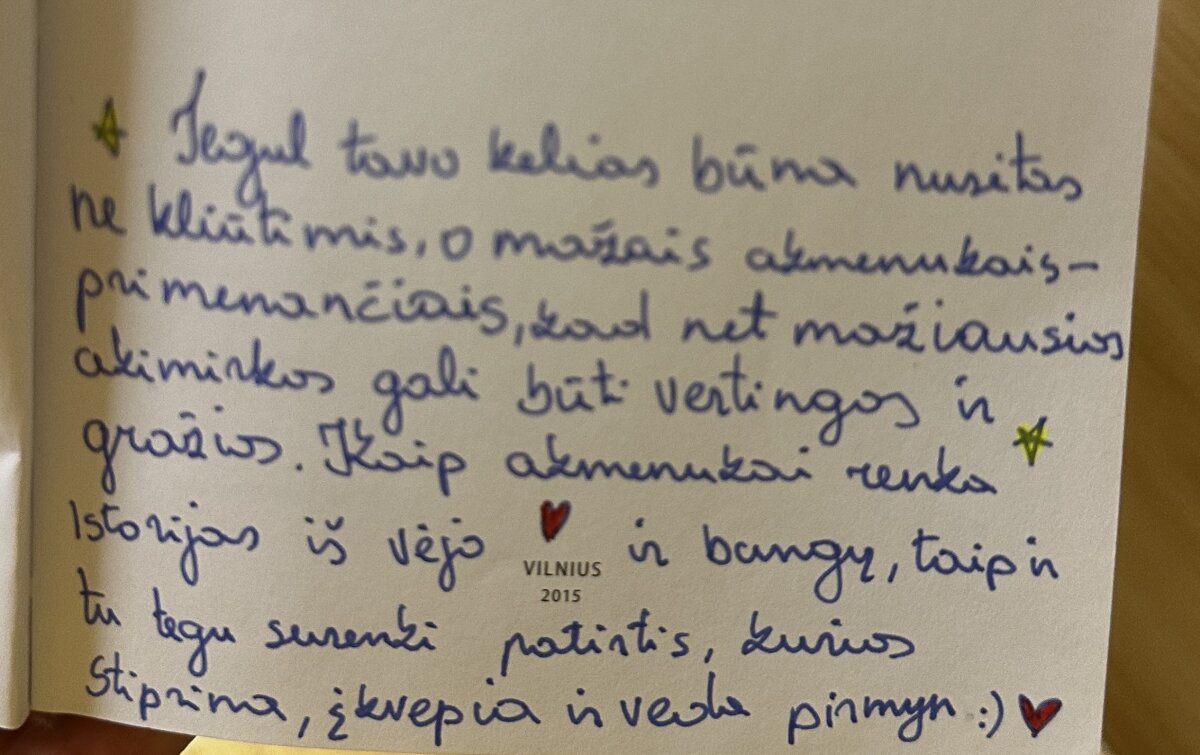 Tegul tavo kelias būna nusitas
ne kliūtimis, o mažais akmenukais–
primenančiais, kad net mažiausios
akimirkos gali būti vertingos ir
gražios. Kaip akmenukai renka
Istorijas iš vėjo ir bangų, taip ir
VILNIUS
2015
tu tegu surenki patirtis, kurios
Stiprina, įkvepia ir veda pirmyn :)